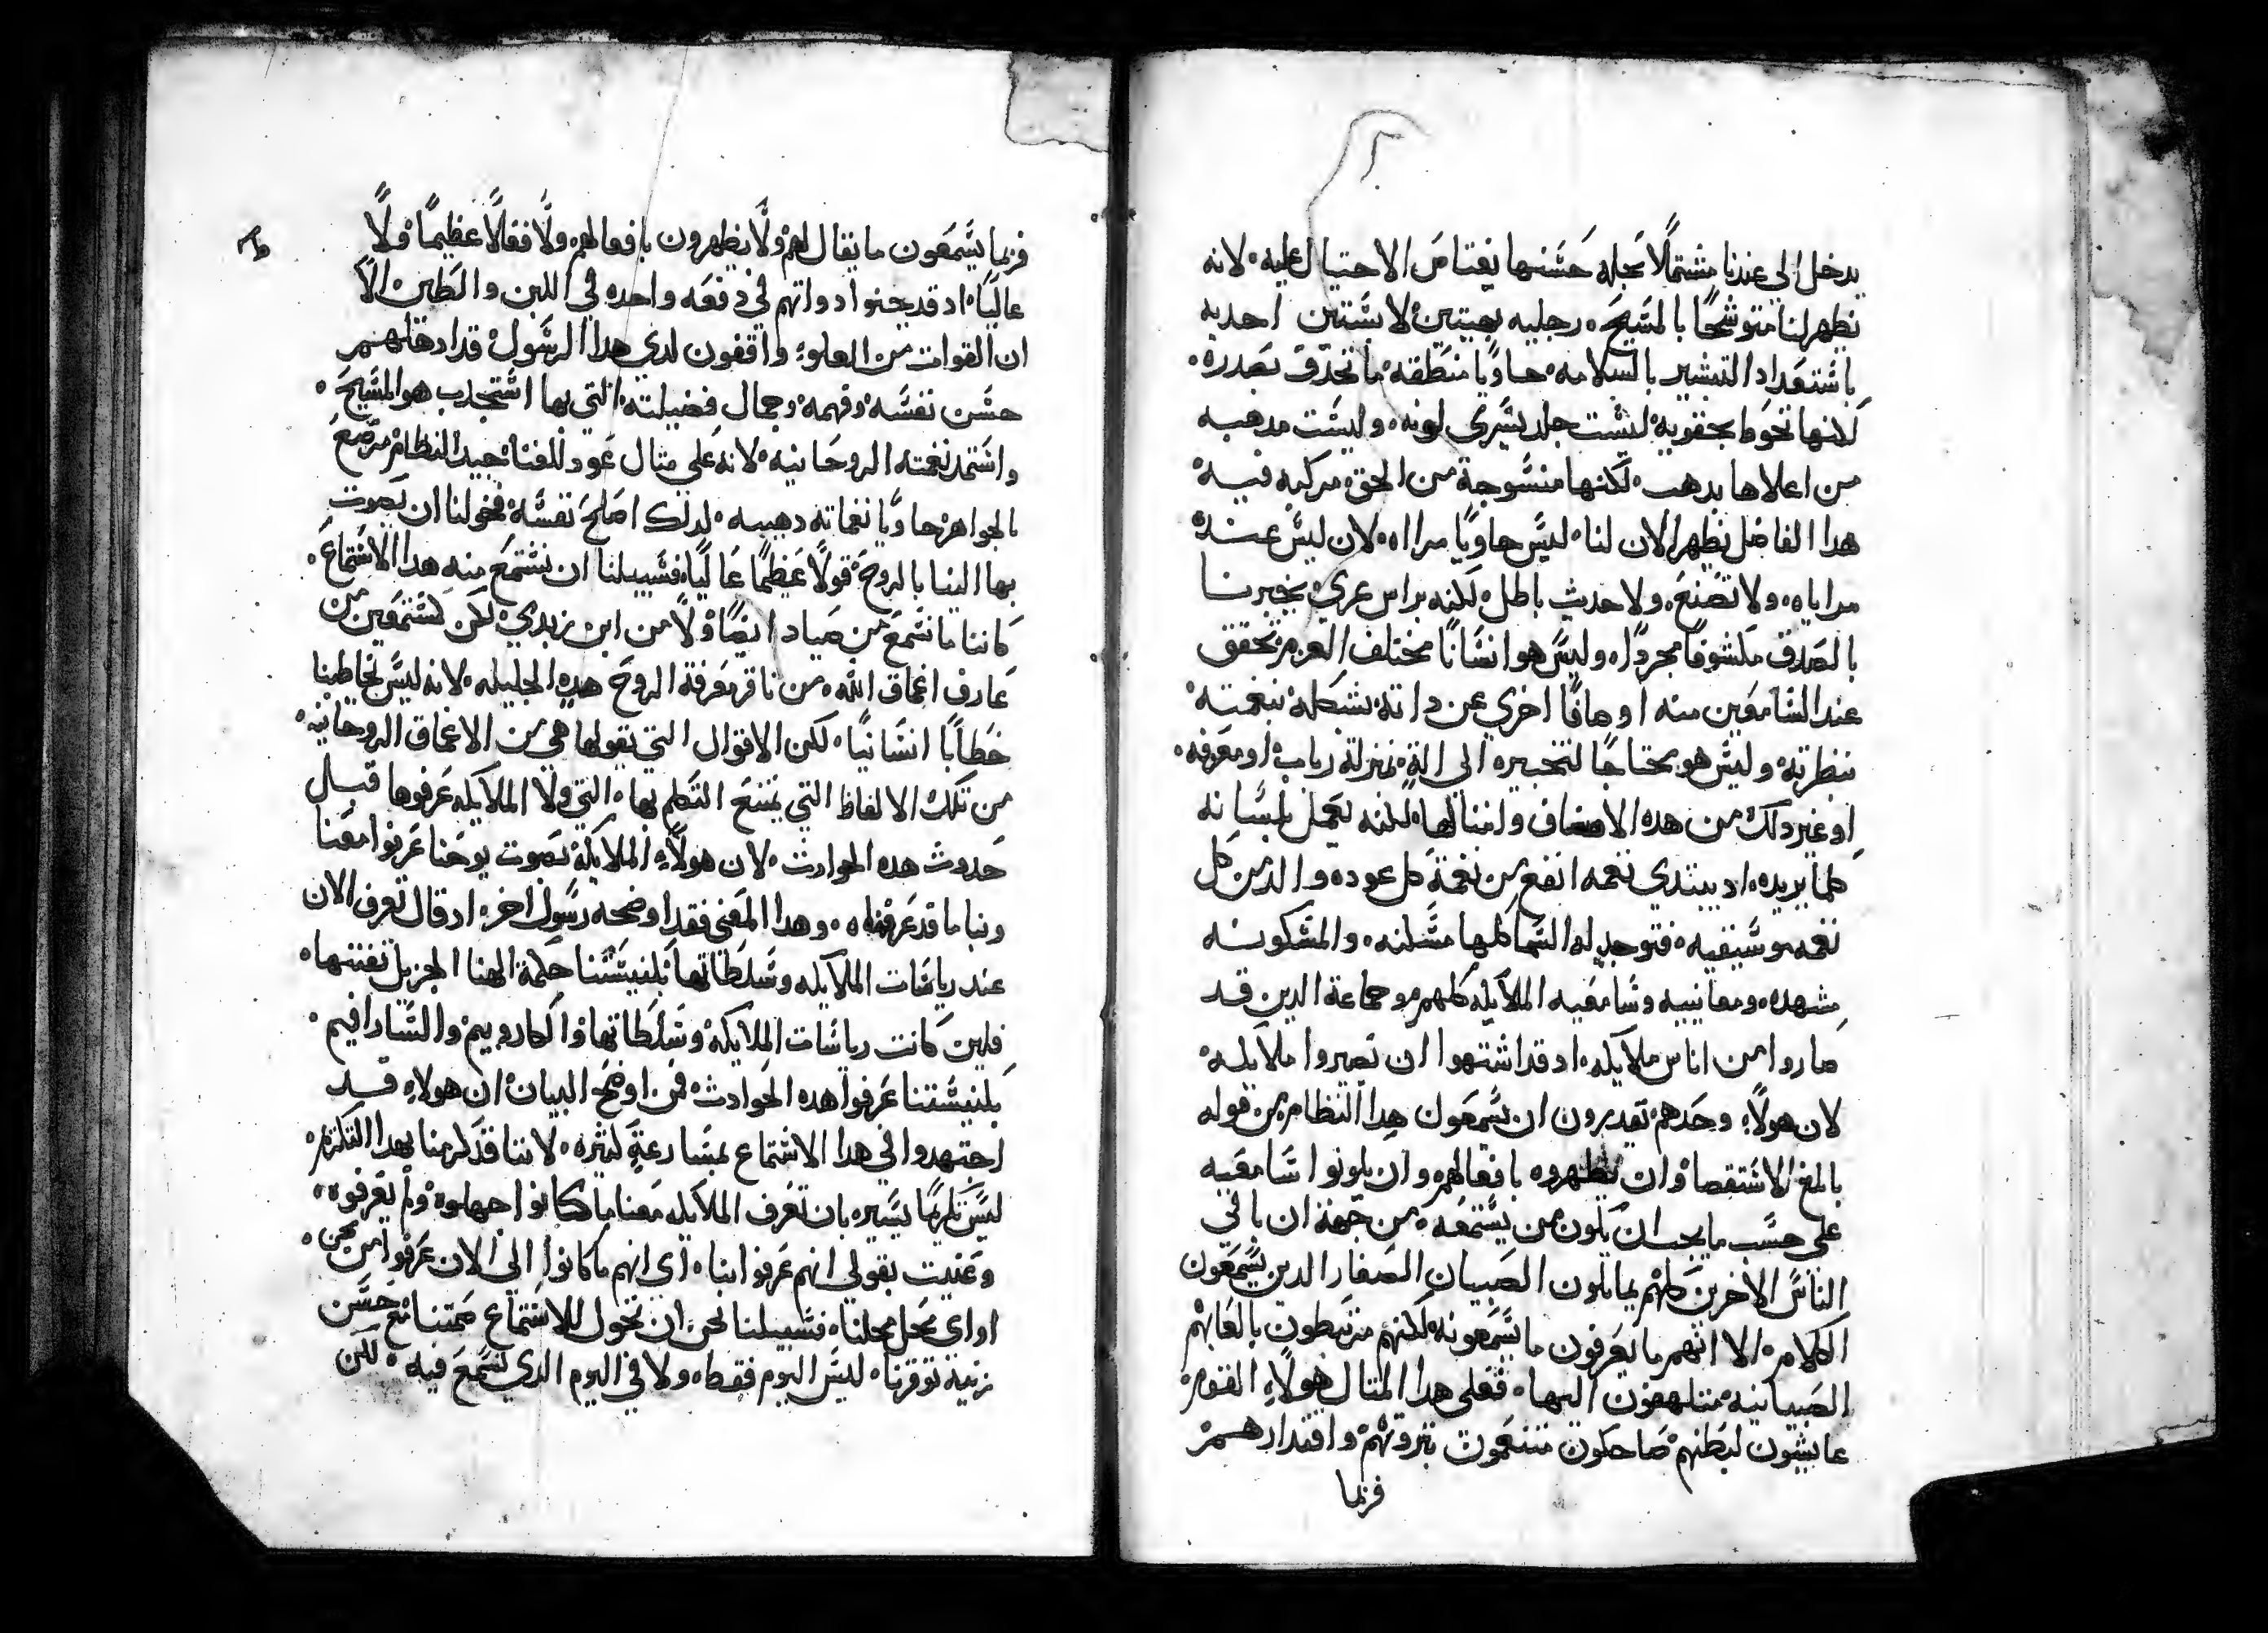 يدخل الي عندنا مشتملًا بحله حسنها يفتاص الاحتيال عليه ٠ لانه
يظهر لنا متوشحًا بالمسيح ٠ رجليه بهيتين لابستين احديه
باستعداد التبشير بالسلامه ٠ حاويًا منطقه ما تحدق بصدره ٠
لانها تحوط بحقويه ليست جلد بشري لونه ٠ وليست مدهبه
من اعلاها بدهب ٠ لكنها منسوجة من الحق مركبه فيه
هدا الفاضل يظهر الان لنا ٠ ليس حاويًا مرااه ٠ لان ليس عنده
مراياه ٠ ولا تصنع ٠ ولا حديث باطل ٠ لكنه براس عري يخبرنا
بالصدق مكشوفًا مجردًا ٠ وليس هو انسانًا مختلف العزم يحقق
عند السامعين منه اوصافًا اخري عن داته بشكله بنغمته
بنظرته ٠ وليس هو محتاجًا لتخبيره الي الة بمنزلة رباب او معزفه ٠
او غير دلك من هده الاصناف وامثالها ٠ لكنه يعمل بلسانه
كلما يريده ٠ اد يبتدي نغمه انفع من نغمة كل عوده والذ من كل
نغمه موسيقيه ٠ فتوجد له السما كلها مسكنه ٠ والمسكونه
مشهده ٠ ومعاينيه وسامعيه الملايكه كلهم وجماعة الدين قد
صاروا من اناس ملايكه ٠ اد قد اشتهوا ان تصيروا ملايكه
لان هولاءِ وحدهم تقدرون ان يسمعون هدا النظام من قوله
بالغ الاستقصا وان يظهروه بافعالهم وان يكونوا سامعيه
علي حسب ما يجب ان يكون من يستمعه ٠ من جهة ان باقي
الناس الاخرين كلهم يماثلون الصبيان الصغار الدين يسمعون
الكلام ٠ الا انهم ما يعرفون ما يسمعونه لكنهم مرتبطون بالعابهم
الصبيانيه متلهفون اليها ٠ فعلي هدا المثال هولاءِ القوم
عايشون لبطنهم ضاحكون متنعمون بثروتهم واقتدارهم
فربما
فربما يسمعون ما يقال لهم ولا يظهرون بافعالهم ولا فعلًا عظيمًا ولا
عاليًا ٠ اد قد يجنوا دواتهم في دفعه واحده في اللبن والطين الا
ان القوات من العلو واقفون لدي هدا الرسول قد ادهلهم
حسن نفسه وفهمه وجمال فضيلته ٠ التي بها استجدب هو المسيح ٠
واستمد نغمته الروحانيه ٠ لانه علي مثال عود للغنا جيد النظام مرصع
بالجواهر حاويًا نغماته دهبيه ٠ لدلك اصلح نفسه فخولنا ان تصوت
بها الينا بالروح قولًا عظيمًا عاليًا ٠ فسبيلنا ان نستمع منه هدا الاستماع ٠
كاننا ما نسمع من صياد ايضًا ولا من ابن زبدي لكن كمستمعين من
عارف اعماق الله ٠ من ناقر معرفة الروح هده الجليله ٠ لانه ليس يخاطبنا
خطابًا انسانيًا ٠ لكن الاقوال التي يقولها هي من الاعماق الروحانيه
من تلك الالفاظ التي يمتنع التكلم بها ٠ التي ولا الملايكه عرفوها قبل
حدوث هده الحوادث ٠ لان هولاءِ الملايكه بصوت يوحنا عرفوا معنا
وبنا ما قد عرفناه ٠ وهدا المعني فقد اوضحه رسول اخر ٠ اد قال تعرف الان
عند رياسات الملايكه وسلطاتها بكنيستنا حكمة الهنا الجزيل تفننها ٠
فلين كانت رياسات الملايكه وسلطاتها والكاروبيم والسارافيم ٠
بكنيستنا عرفوا هده الحوادث فمن اوضح البيان ان هولاءِ قد
اجتهدوا في هدا الاستماع بمسارعةٍ كثيره ٠ لاننا قد كرمنا بهدا التكريم
ليس تكريمًا يسيره بان تعرف الملايكه معنا ما كانوا جهلوه ولم يعرفوه ٠
وعنيت بقولي انهم عرفوا بنا ٠ اي انهم ما كانوا الي الان عرفوا من نحن ٠
او اي محل محلنا ٠ فسبيلنا نحن ان نخول للاستماع صمتنا مع حسن
زينة توقرنا ٠ ليس اليوم فقط ٠ ولا في اليوم الدي نسمع فيه ٠ لكن